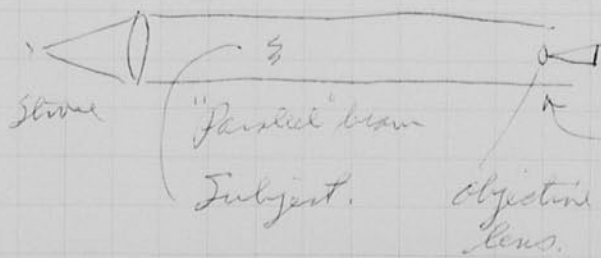 Strobe
"Parallel" beam
Subject.
objective
lens.